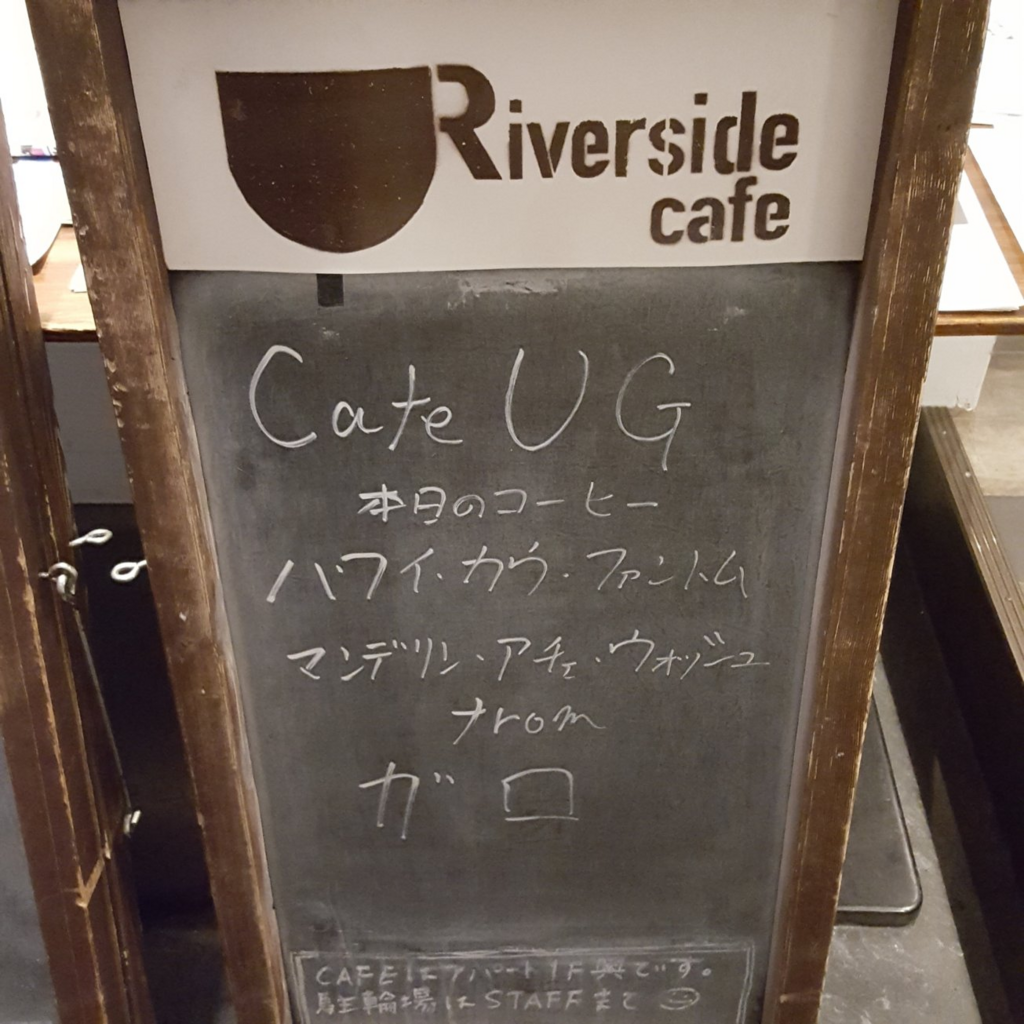 Riverside
cafe
Cafe UG
本日のコーヒー
ハワイ・カウ・ファントム
マンデリン・アチェ・ウォッシュ
from
ガロ
CAFEはアパート1F奥です。
駐輪場はSTAFFまで